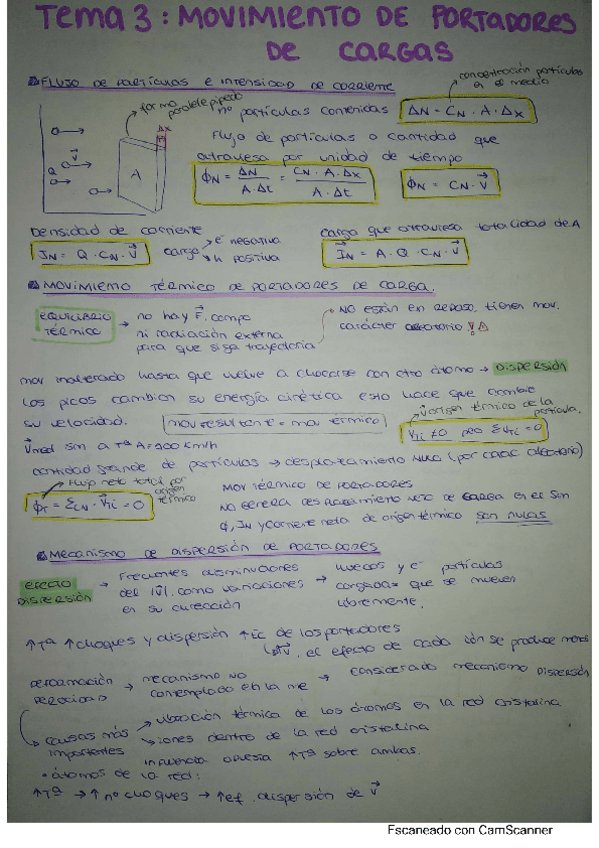 TEMA 3: MOVIMIENTO DE PORTADORES
DE CARGAS
FLUJO DE PARTÍCULAS E INTENSIDAD DE CORRIENTE
concentración partículas
en el medio
forma
paralelepípedo
nº partículas contenidas ΔN = CN · A · Δx
Flujo de partículas o cantidad que
atraviesa por unidad de tiempo
Δx
v
Q
A
ΦN = ΔN / A·Δt = CN · A · Δx / A · Δt
ΦN = CN · v
Densidad de corriente
carga que atraviesa totalidad de A
JN = Q · CN · v
carga
e⁻ negativa
h positiva
IN = A · Q · CN · v
MOVIMIENTO TÉRMICO DE PORTADORES DE CARGA.
EQUILIBRIO
TÉRMICO
→ no hay F. campo
ni radiación externa
para que siga trayectoria
NO están en reposo, tienen mov.
carácter aleatorio
mov inalterado hasta que vuelve a chocarse con otro átomo → DISPERSIÓN
Los picos cambian su energía cinética esto hace que cambie
su velocidad.
mov resultante = mov térmico
v origen térmico de la
partícula.
vti ≠ 0 pero Σvti = 0
Vmed sin a Tª A =
km/h
cantidad grande de partículas → desplazamiento nulo (por carac aleatorio)
Flujo neto total por
origen
térmico
ΦT = ΣCN · vti = 0
MOV TÉRMICO DE PORTADORES
NO GENERA DESPLAZAMIENTO NETO DE CARGA EN EL Sin
Φ, JN y corriente neta de origen térmico son nulas
MECANISMO DE DISPERSIÓN DE PORTADORES
EFECTO
DISPERSIÓN
→ Frecuentes disminuciones
del |v|, como variaciones
en su dirección
→ huecos y e⁻ partículas
cargadas que se mueven
libremente.
↑Tª ↑choques y dispersión ↑Ec de los portadores
↓v, el efecto de cada ión se produce menos
mecanismo no
contemplado en la me
→ considerado mecanismo DISPERSIÓN
causas más
importantes
→ vibración térmica de los átomos en la red cristalina
→ iones dentro de la red cristalina
influencia opuesta ↑Tª sobre ambas.
• átomos de la red:
↑Tª → ↑ nº choques → ↑ef. dispersión de v
Escaneado con CamScanner